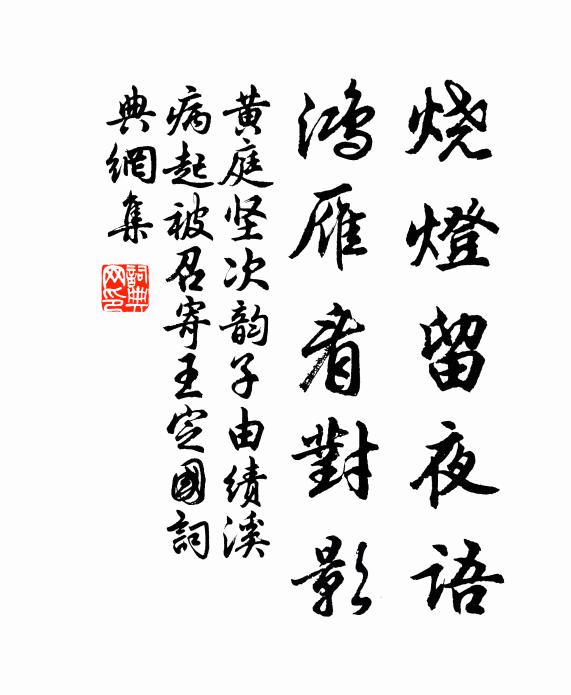 烧燈留夜语
鸿雁看對影
黄庭坚次韵子由绩溪
病起被召寄王定國詞
典網集
詞典网印